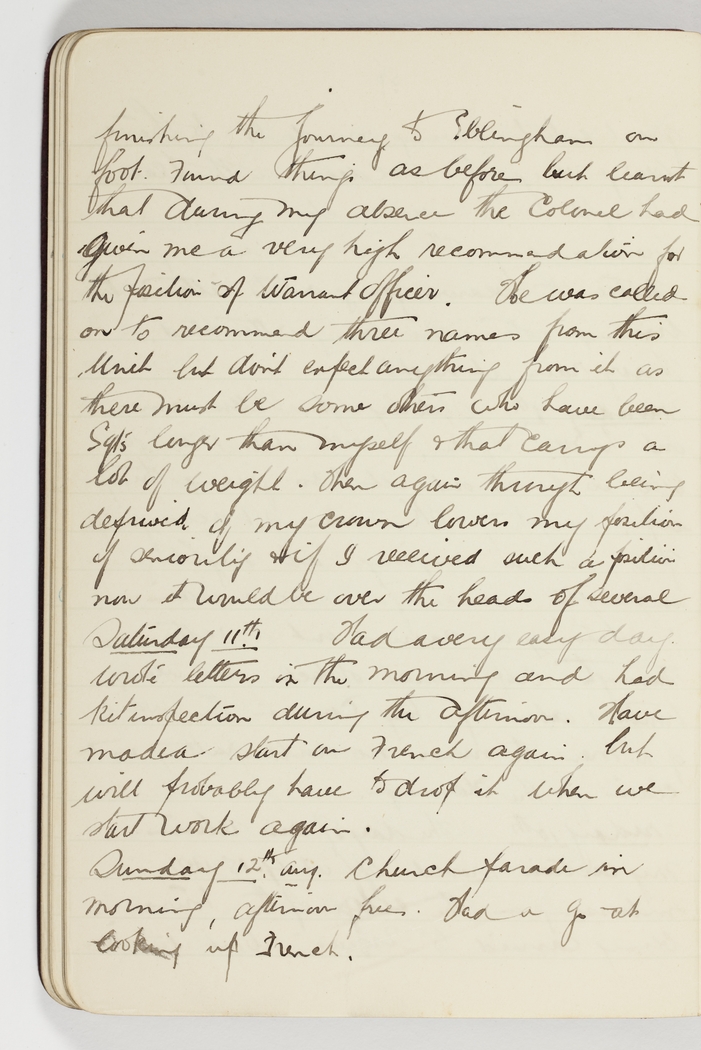 finishing the journey to Ebblingham on
foot. Found things as before but learnt
that during my absence the Colonel had
given me a very high recommendation for
the position of Warrant Officer. He was called
on to recommend three names from this
Unit but don't expect anything from it as
there must be some others who have been
Sgts longer than myself & that carrys a
lot of weight. Then again through being
deprived of my crown lowers my position
of seniority & if I received such a position
now it would be over the heads of several
Saturday 11th. Had a very easy day.
wrote letters in the morning and had
kit inspection during the afternoon. Have
made a start on French again. but
will probably have to drop it when we
start work again.
Sunday 12th Aug. Church parade in
morning, afternoon free. Had a go at
looking up French.